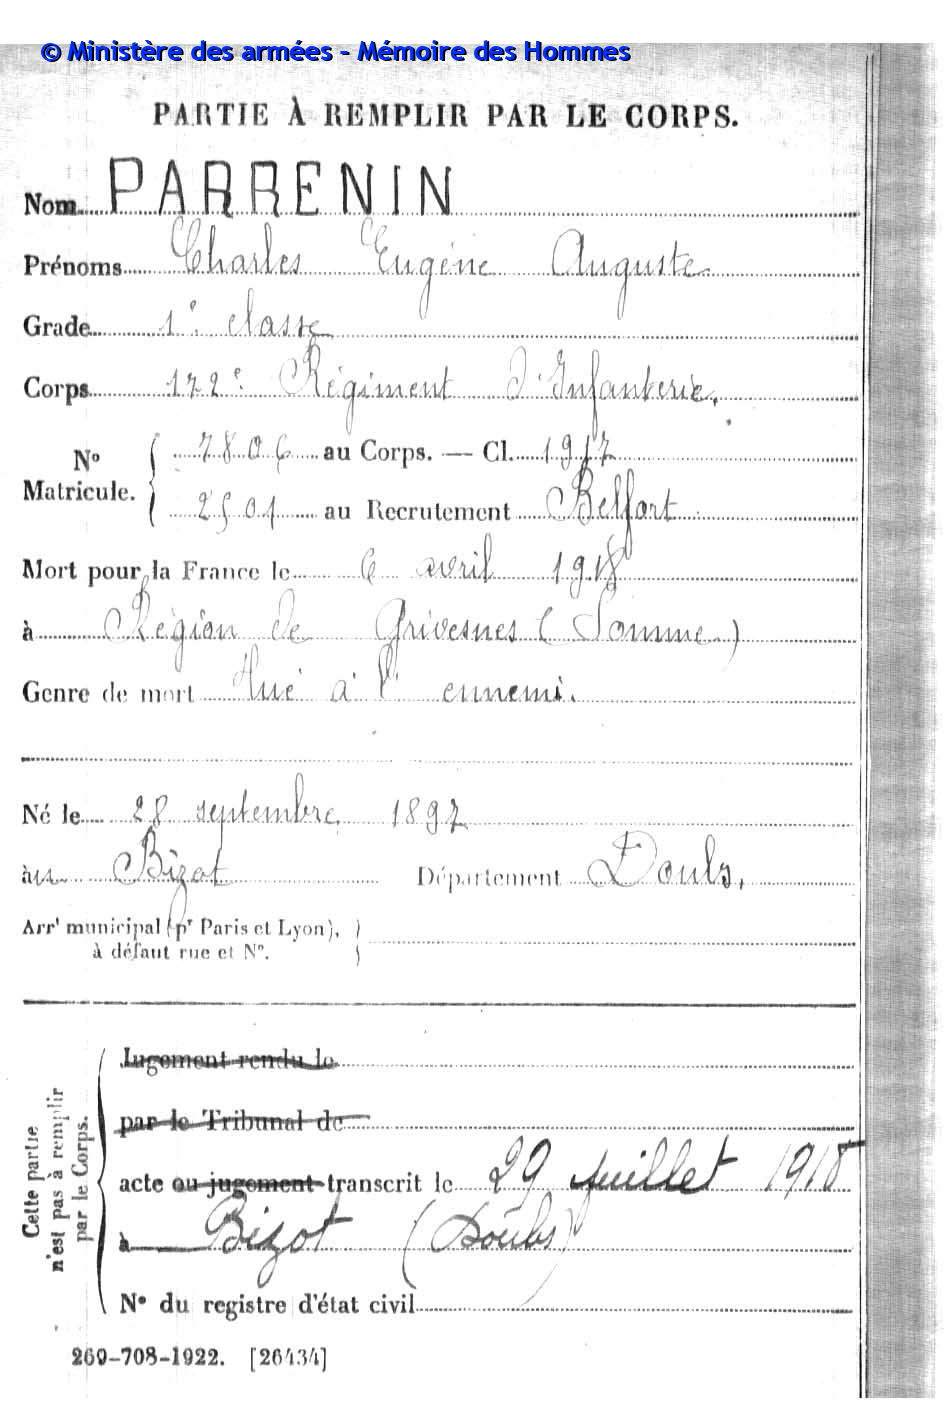 © Ministère des armées - Mémoire des Hommes
PARTIE À REMPLIR PAR LE CORPS.
Nom PARRENIN
Prénoms Charles Eugéne Auguste
Grade 1e classe
Corps 172e Régiment d'Infanterie.
No Matricule. { 7806 au Corps. — Cl. 1917
2501 au Recrutement Belfort
Mort pour la France le 6 avril 1918
à Région de Grivesnes (Somme)
Genre de mort tué à l'ennemi.
Né le 28 septembre 1897
àu Bizot Département Doubs,
Arrt municipal (pr Paris et Lyon), à défaut rue et No.
Cette partie n'est pas à remplir par le Corps.
Jugement rendu le
par le Tribunal de
acte ou jugement transcrit le 29 juillet 1918
à Bizot (Doubs)
No du registre d'état civil
269-708-1922. [26434]